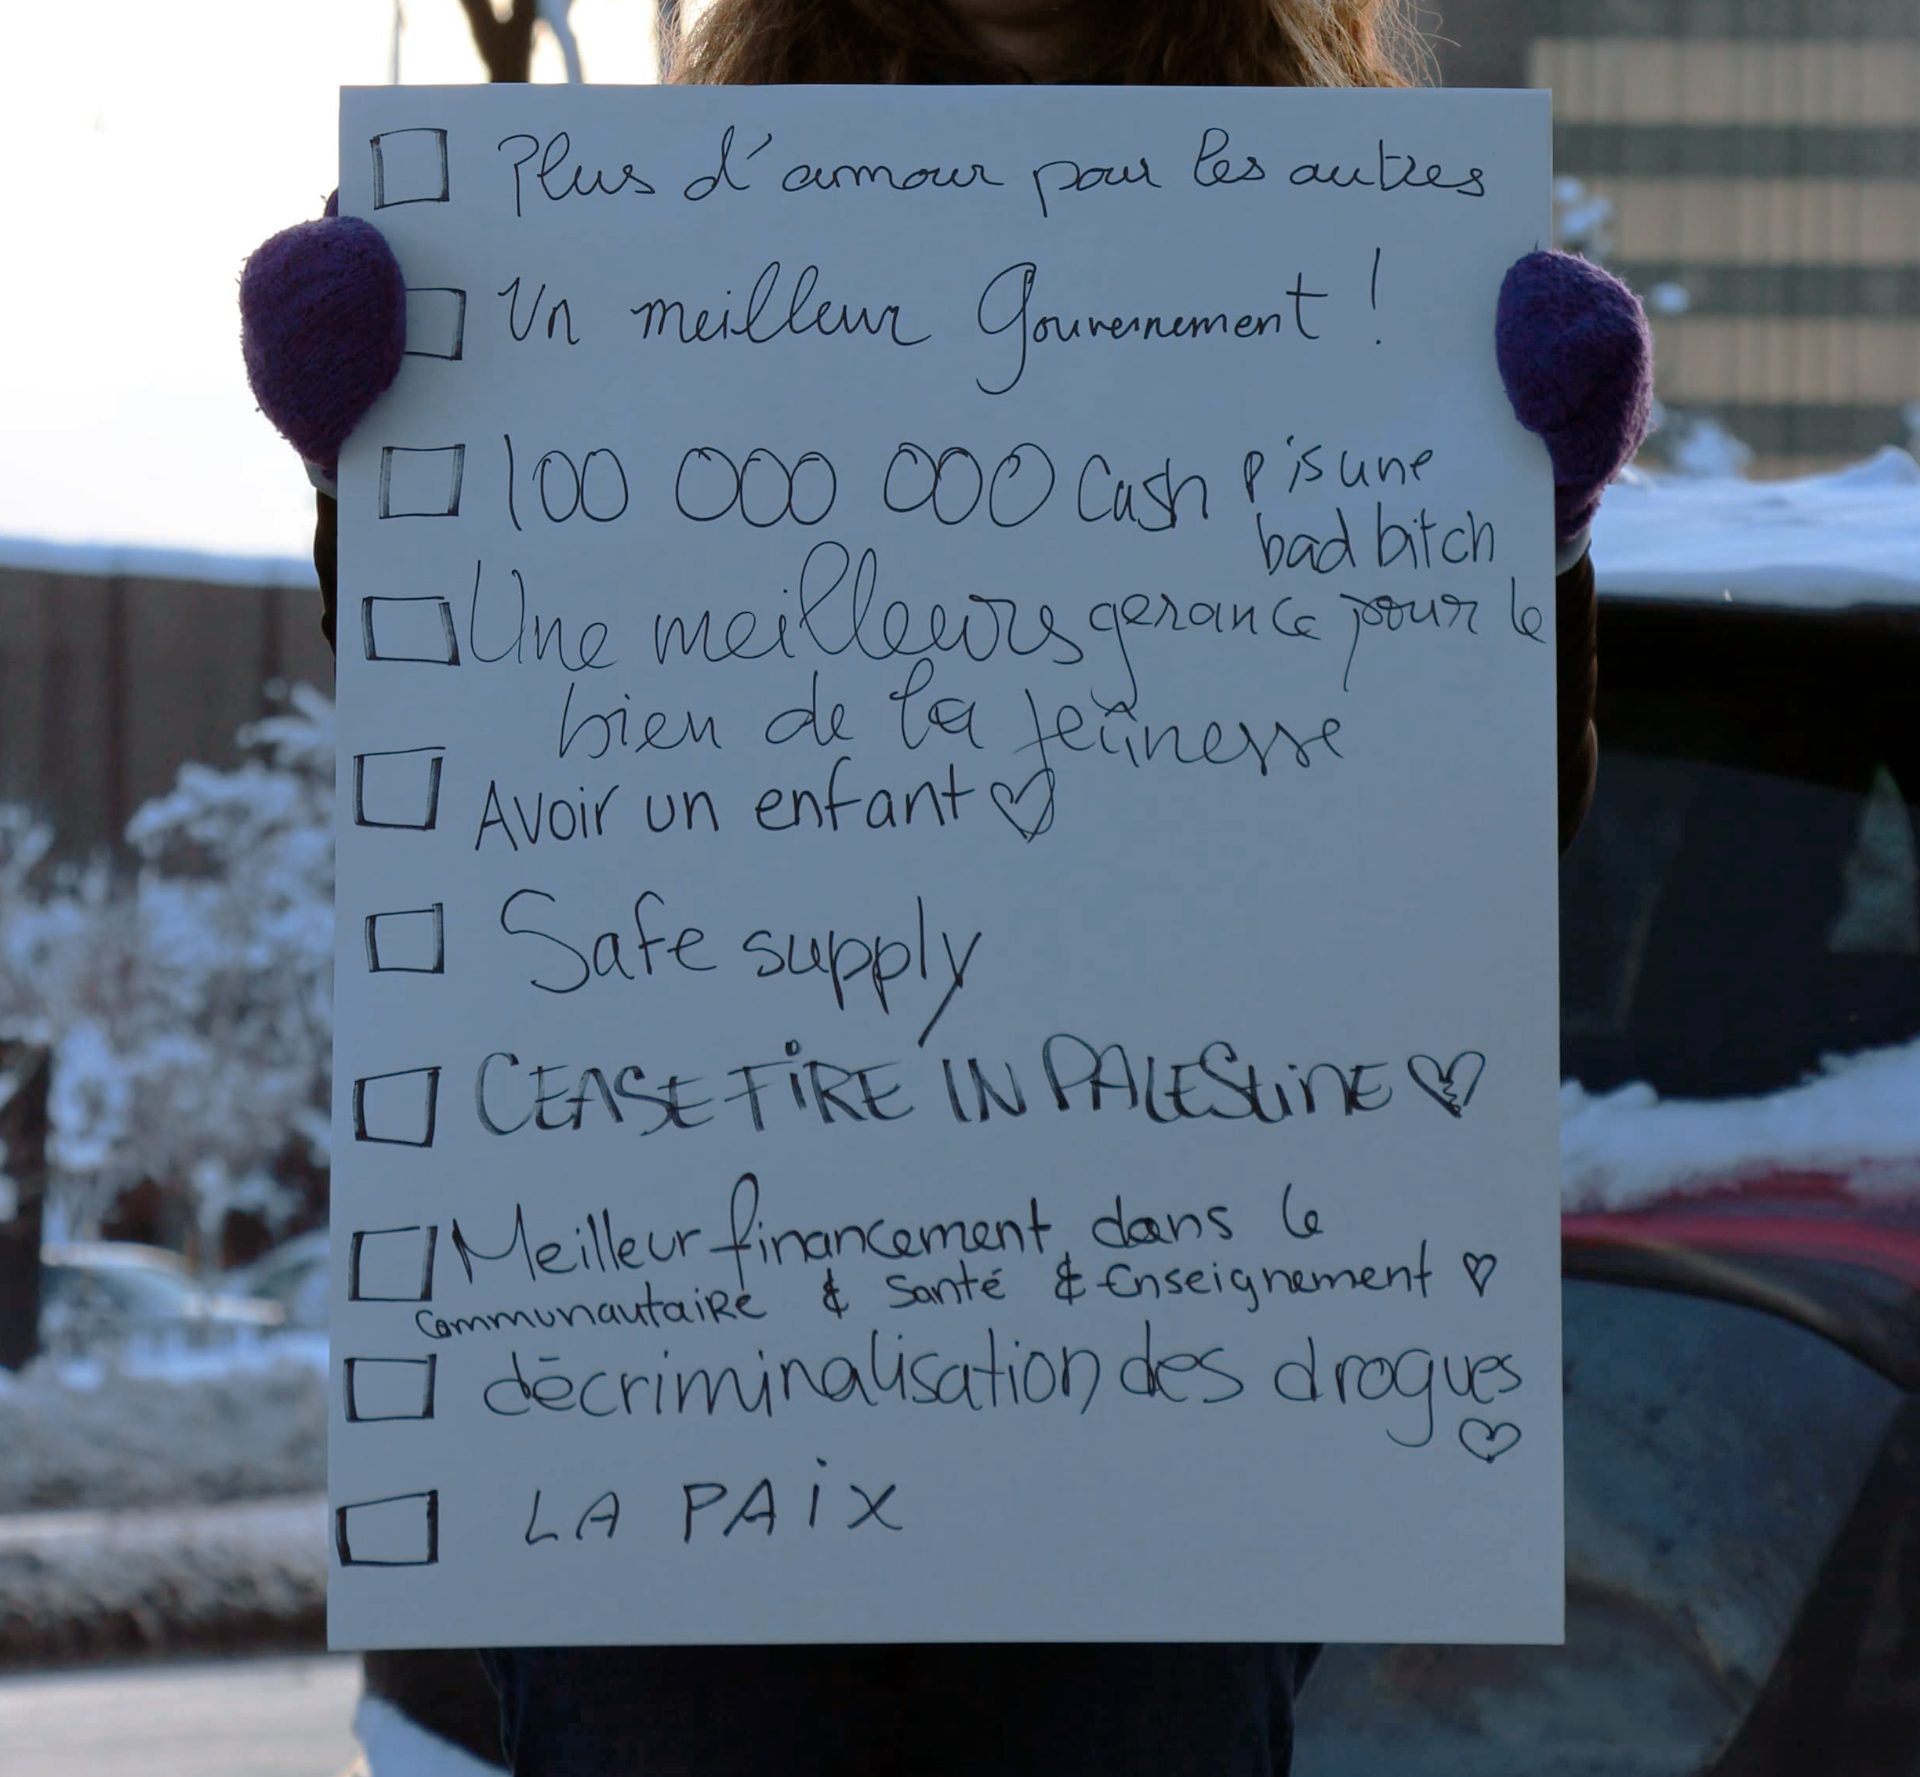 Plus d'amour pour les autres
Un meilleur Gouvernement !
100 000 000 Cash pis une
bad bitch
Une meilleeurs gerance pour le
bien de la Jeûnesse
Avoir un enfant ♡
Safe supply
CEASE FiRE IN PALESTiNE ♡
Meilleur financement dans le
Communautaire & Santé & Enseignement ♡
décriminalisation des drogues
♡
LA PAiX